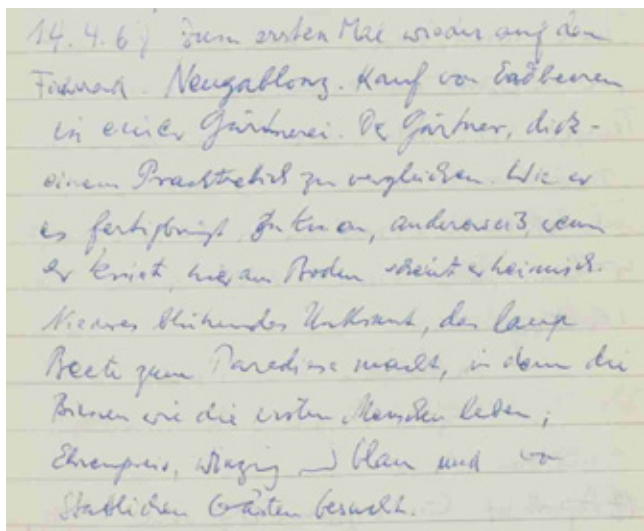 14.4.67 Zum ersten Mal wieder auf dem
Fahrrad. Neugablonz. Kauf von Erdbeeren
in einer Gärtnerei. Der Gärtner, dick -
einem Prachtrettich zu vergleichen. Wie er
es fertigbringt zu knien, andererseits, wenn
er kniet, hier am Boden scheint er heimisch.
Niederes blühendes Unkraut, das
Beete zum Paradiese macht, in dem die
Bienen wie die ersten Menschen leben;
Ehrenpreis, winzig und blau und von
stattlichen Gästen besucht.